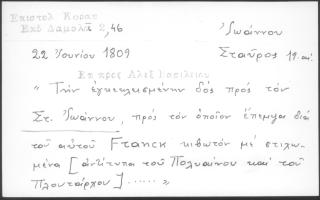 Επιστολ Κοραη
Εκδ Δαμαλᾶ 2,46
Ἰωάννου
Σταῦρος 19. αἰ.
22 Ἰουνίου 1809
Επ προς Αλεξ Βασιλειου
"Τὴν ἐγκεκλεισμένην δὸς πρὸς τὸν
Στ. Ἰωάννου, πρὸς τὸν ὁποῖον ἔπεμψα διὰ
τοῦ αὐτοῦ Franck κιβωτὸν μὲ στιχω-
μένα [ἀντίτυπα τοῦ Πολυαίνου καὶ τοῦ
Πλουτάρχου] ...... "